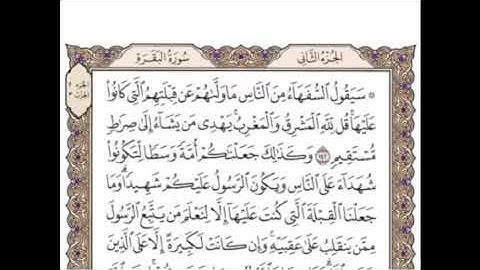 الجزء الثاني
سورة البقرة
سَيَقُولُ السُّفَهَاءُ مِنَ النَّاسِ مَا وَلَّىٰهُمْ عَن قِبْلَتِهِمُ الَّتِي كَانُوا
عَلَيْهَا ۚ قُل لِّلَّهِ الْمَشْرِقُ وَالْمَغْرِبُ ۚ يَهْدِي مَن يَشَاءُ إِلَىٰ صِرَاطٍ
مُّسْتَقِيمٍ ١٤٢ وَكَذَٰلِكَ جَعَلْنَاكُمْ أُمَّةً وَسَطًا لِّتَكُونُوا
شُهَدَاءَ عَلَى النَّاسِ وَيَكُونَ الرَّسُولُ عَلَيْكُمْ شَهِيدًا ۗ وَمَا
جَعَلْنَا الْقِبْلَةَ الَّتِي كُنتَ عَلَيْهَا إِلَّا لِنَعْلَمَ مَن يَتَّبِعُ الرَّسُولَ
مِمَّن يَنقَلِبُ عَلَىٰ عَقِبَيْهِ ۚ وَإِن كَانَتْ لَكَبِيرَةً إِلَّا عَلَى الَّذِينَ